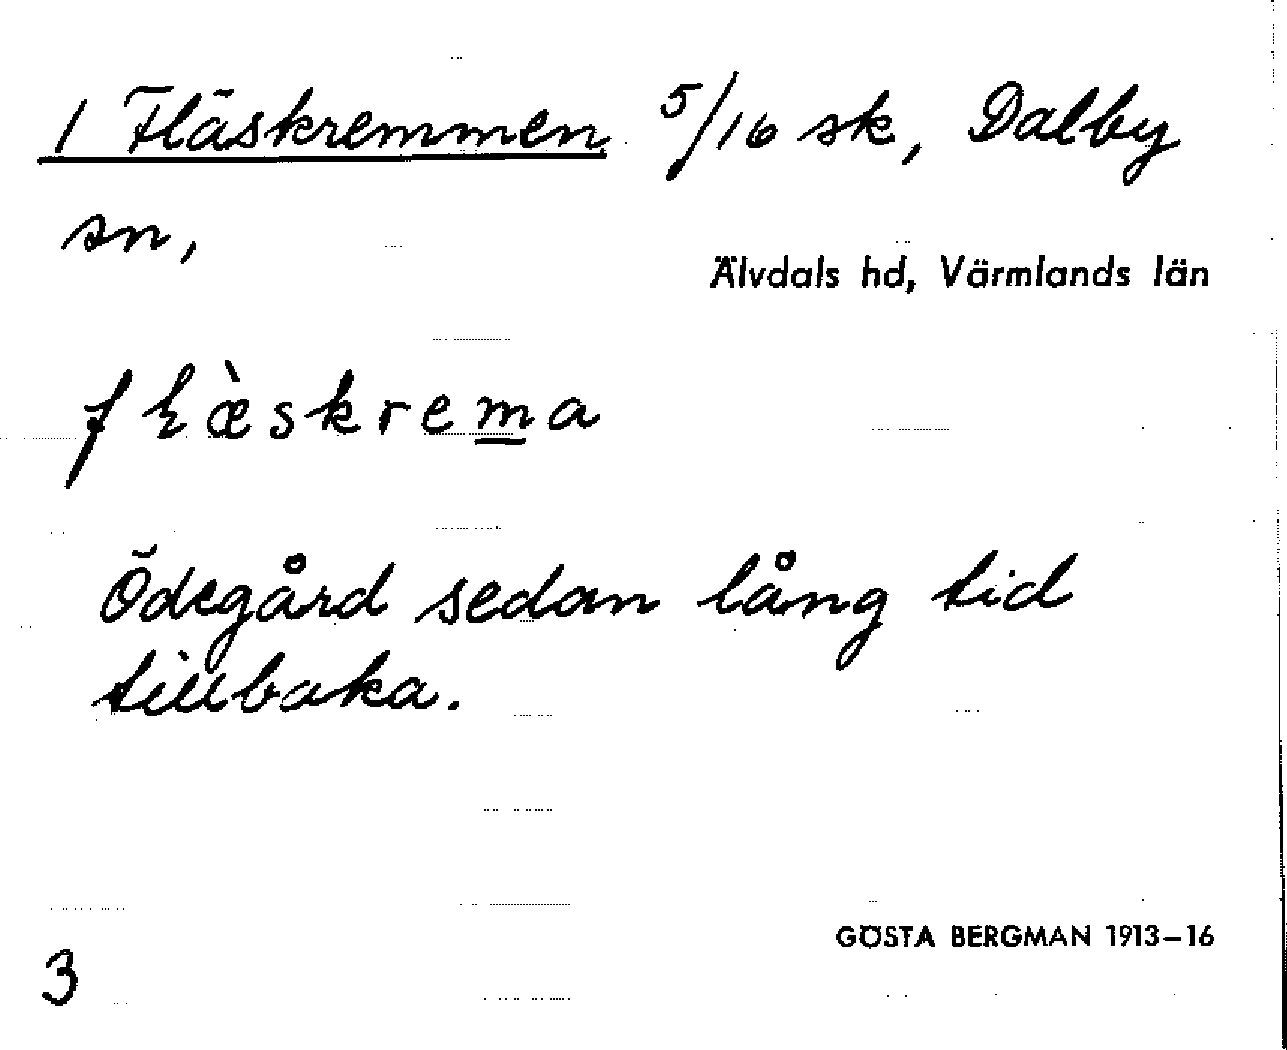 1 Fläskremmen 5/16 sk, Dalby
sn,
Älvdals hd, Värmlands län
fɫæ̀skrem̲a
Ödegård sedan lång tid
tillbaka.
GÖSTA BERGMAN 1913–16
3